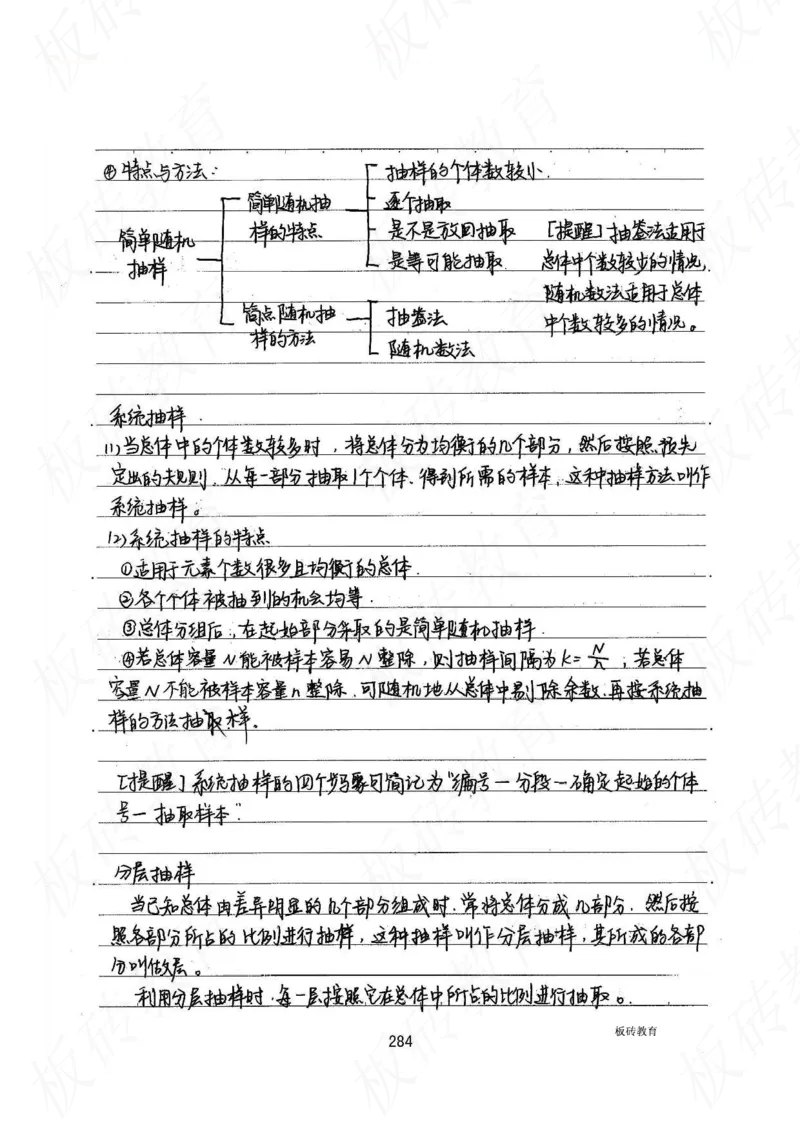 ④特点与方法:
抽样的个体数较小.
简单随机抽
逐个抽取
样的特点
是不是放回抽取
[提醒]抽签法适用于
简单随机
抽样
是等可能抽取
总体中个数较少的情况,
随机数法适用于总体
简点随机抽
抽签法
中个数较多的情况。
样的方法
随机数法
系统抽样.
(1)当总体中的个体数较多时,将总体分为均衡的几个部分,然后按照预先
定出的规则,从每一部分抽取1个个体、得到所需的样本,这种抽样方法叫作
系统抽样。
(2)系统抽样的特点
①适用于元素个数很多且均衡的总体.
②各个个体被抽到的机会均等.
③总体分组后,在起始部分采取的是简单随机抽样.
④若总体容量N能被样本容易N整除,则抽样间隔为k=N/n;若总体
容量N不能被样本容量n整除、可随机地从总体中剔除余数、再按系统抽
样的方法抽取样.
[提醒]系统抽样的四个步骤可简记为“编号一分段一确定起始的个体
号一抽取样本”
分层抽样
当已知总体由差异明显的几个部分组成时、常将总体分成几部分、然后按
照各部分所占的比例进行抽样,这种抽样叫作分层抽样,其所成的各部
分叫做层。
利用分层抽样时、每一层按照它在总体中所占的比例进行抽取。
284
板砖教育